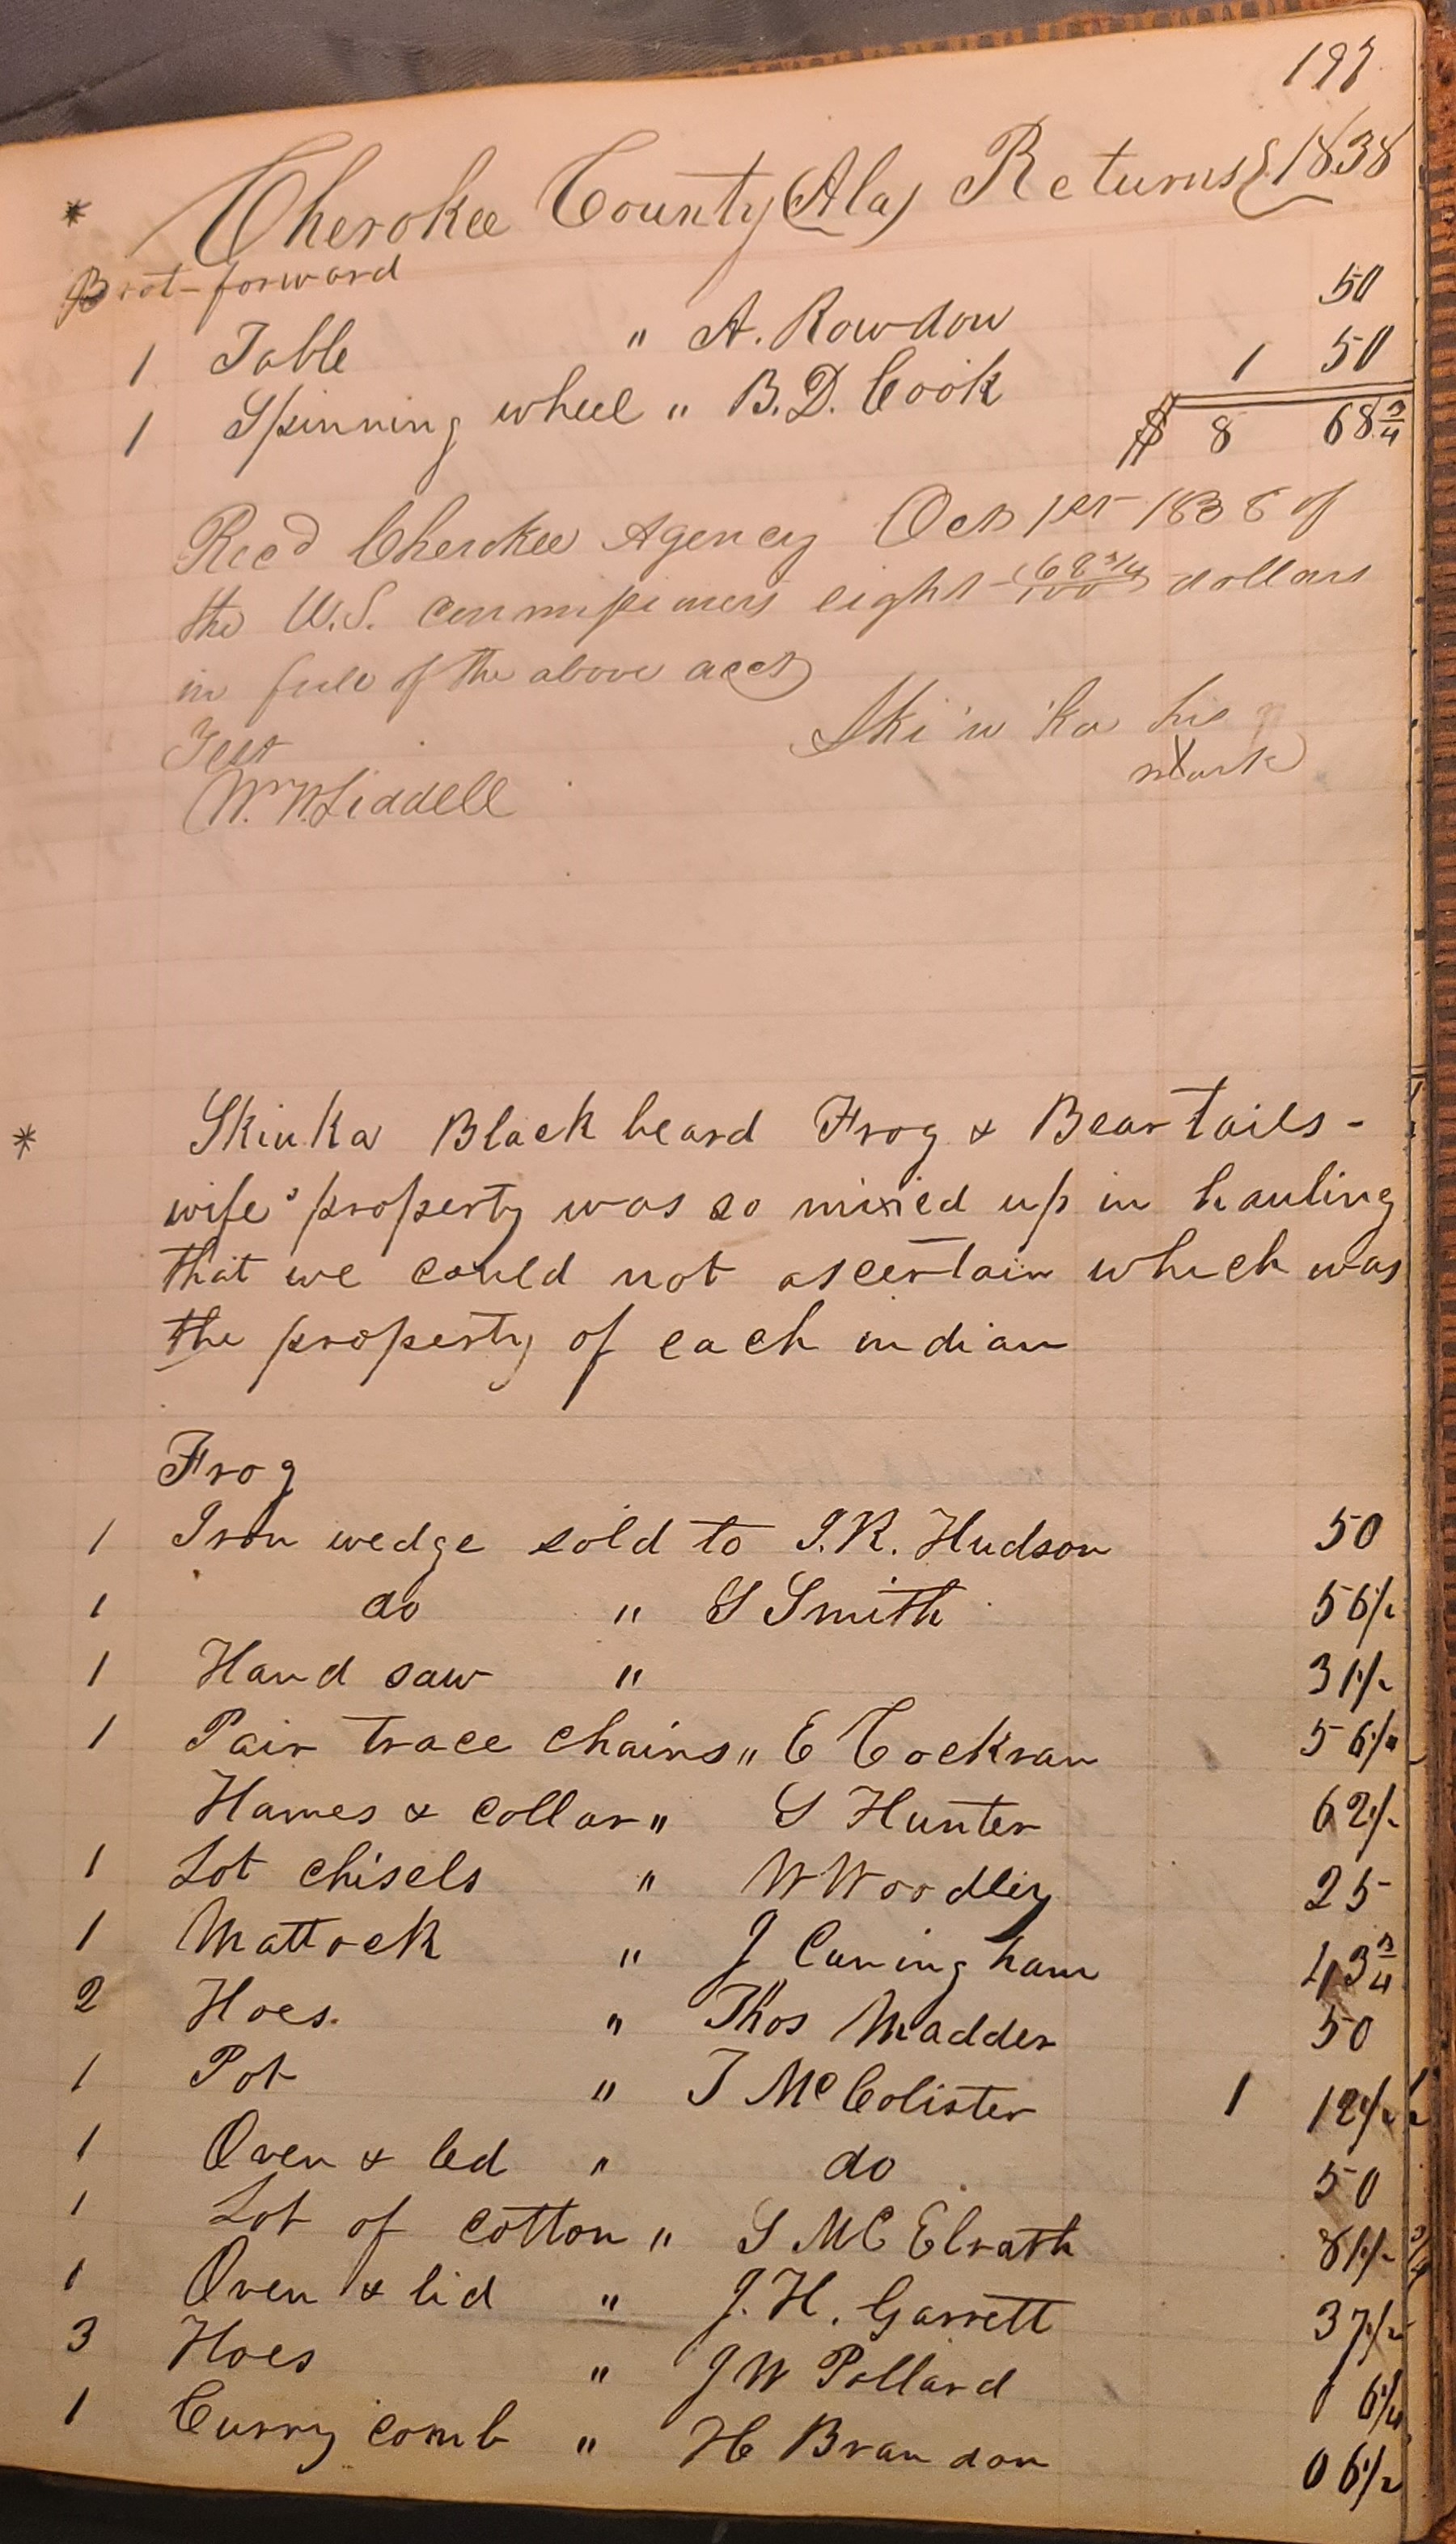 197
* Cherokee County (Ala) Returns 1838
Brot-forward
1 Table " A. Rowdon 50
1 Spinning wheel " B.D. Cook 1 50
$ 8 68 3/4
Recd Cherokee Agency Oct 1st 1838 of
the U.S. commissioners eight 68 3/4/100 dollars
in full of the above acct
Test Ski'n'ka his
Wm. W. Liddell X mark
* Skinka Black beard Frog & Bear tails -
wife's property was so mixed up in hauling
that we could not ascertain which was
the property of each indian
Frog
1 Iron wedge sold to J.R. Hudson 50
1 do " S Smith 56 1/2
1 Hand saw " 31 1/2
1 Pair trace chains " E Cockran 56 1/4
Hames & Collar " S Hunter 62 1/2
1 Lot chisels " W Woodley 25
1 Mattock " J Cuningham 43 3/4
2 Hoes. " Thos Madder 50
1 Pot " T McColister 1 12 1/2
1 Oven & led " do 50
1 Lot of cotton " S McElrath 81 1/2
1 Oven & lid " J.H. Garrett 37 1/2
3 Hoes " JW Pollard 6 1/4
1 Curry comb " H Brandon 06 1/2